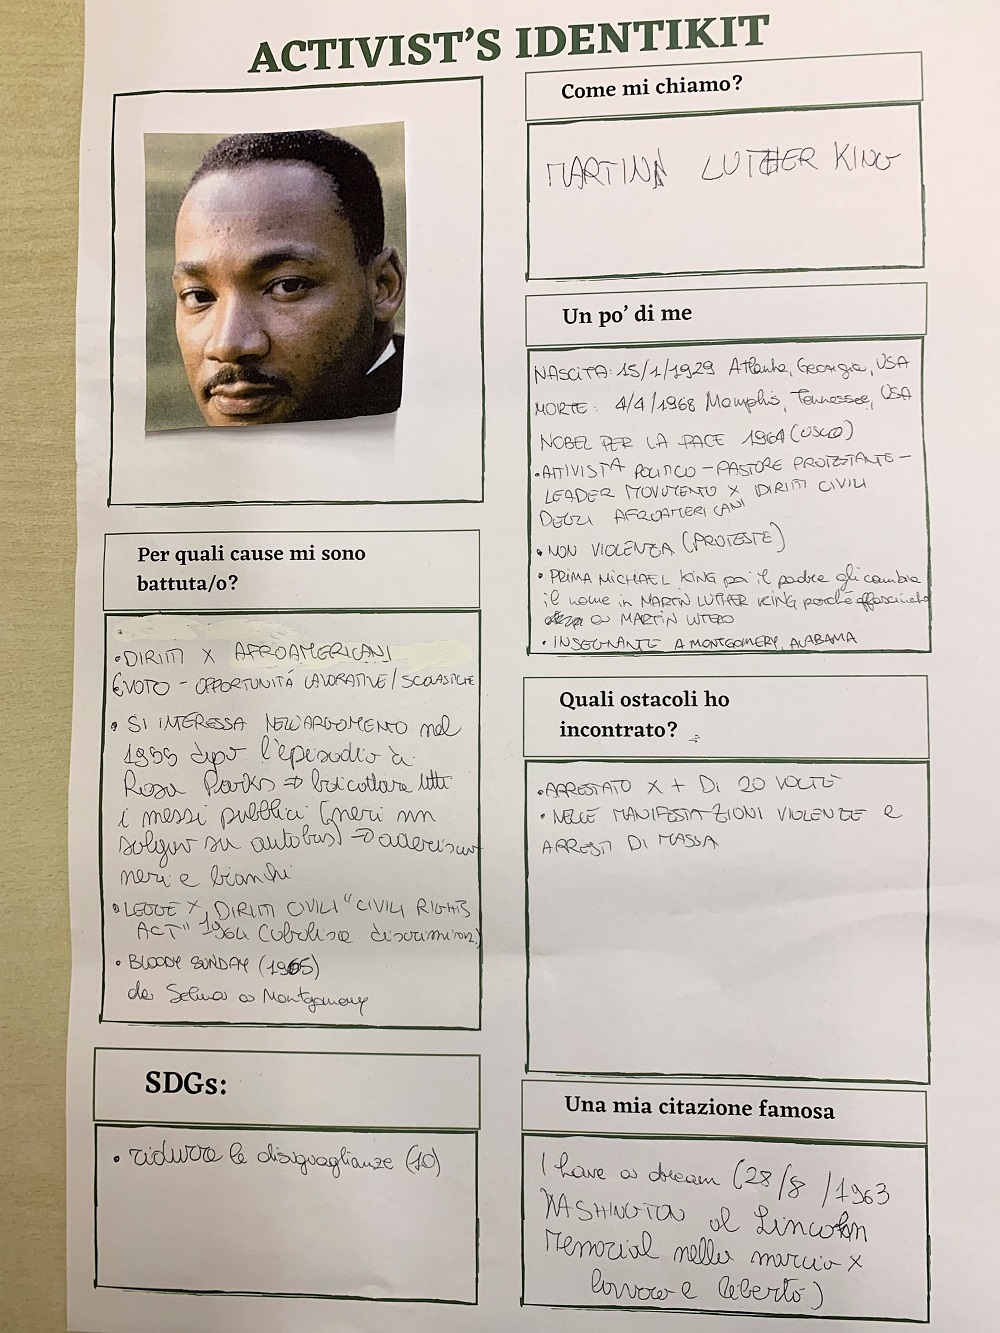 ACTIVIST'S IDENTIKIT
Come mi chiamo?
MARTINN LUTHER KING
Un po' di me
NASCITA: 15/1/1929 Atlanta, Georgia, USA
MORTE: 4/4/1968 Memphis, Tennessee, USA
NOBEL PER LA PACE 1964 (OSLO)
• ATTIVISTA POLITICO - PASTORE PROTESTANTE -
LEADER MOVIMENTO X DIRITTI CIVILI
DEGLI AFROAMERICANI
• NON VIOLENZA (PROTESTE)
• PRIMA MICHAEL KING poi il padre gli cambia
il nome in MARTIN LUTHER KING perché affascinato
a MARTIN LUTERO
• INSEGNANTE A MONTGOMERY, ALABAMA
Per quali cause mi sono
battuta/o?
• DIRITTI X AFROAMERICANI
VOTO - OPPORTUNITÁ LAVORATIVE/SCOLASTICHE
• SI INTERESSA NELL'ARGOMENTO nel
1955 dopo l'episodio di
Rosa Parks ⇒ boicottare tutti
i mezzi pubblici (neri non
salgono su autobus) ⇒ aderiscono
neri e bianchi
• LEGGE X DIRITTI CIVILI "CIVILI RIGHTS
ACT" 1964 (abolisce discriminaz.)
• BLOODY SUNDAY (1965)
da Selma a Montgomery
Quali ostacoli ho
incontrato?
• ARRESTATO X + DI 20 VOLTE
• NELLE MANIFESTAZIONI VIOLENZE e
ARRESTI DI MASSA
SDGs:
• ridurre le disuguaglianze (10)
Una mia citazione famosa
I have a dream (28/8/1963
WASHINGTON al Lincoln
Memorial nella marcia x
lavoro e libertà)